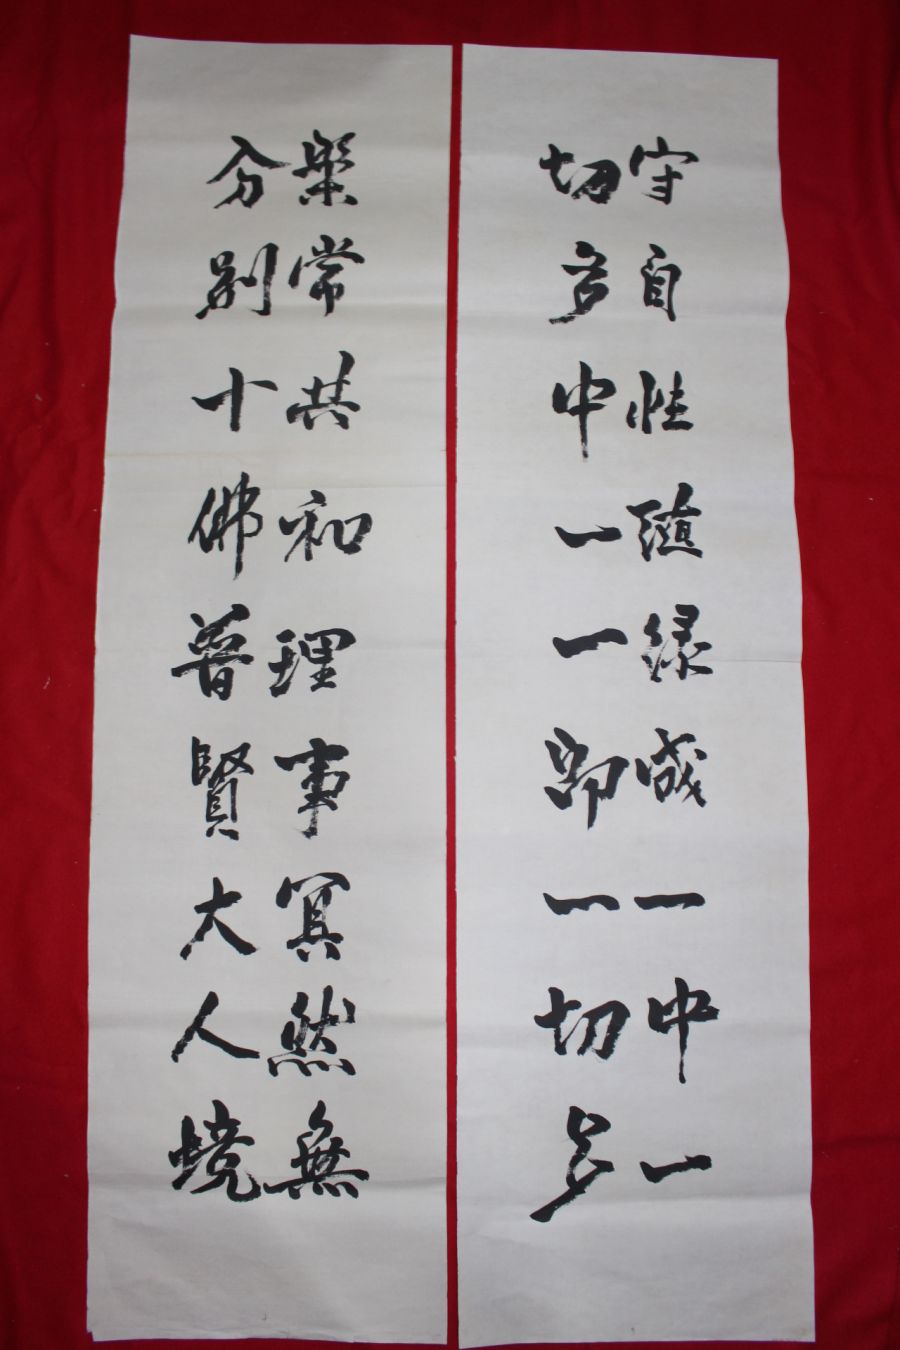 守自性隨緣成一中一
切多中一一卽一切多
槃常共和理事冥然無
分別十佛普賢大人境